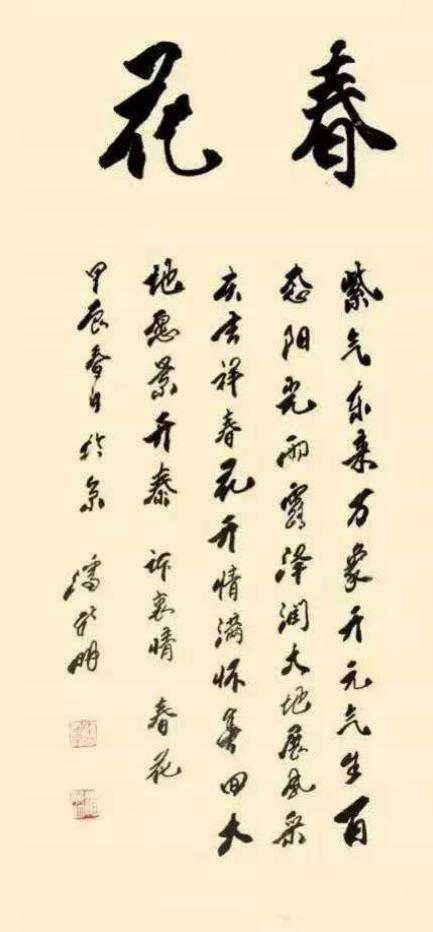 春花
紫气东来万象开元气生百
态阳光雨露泽润大地展风采
庆吉祥春花开情满怀春回大
地愿景开泰 诉衷情 春花
甲辰春日於京 潘 明